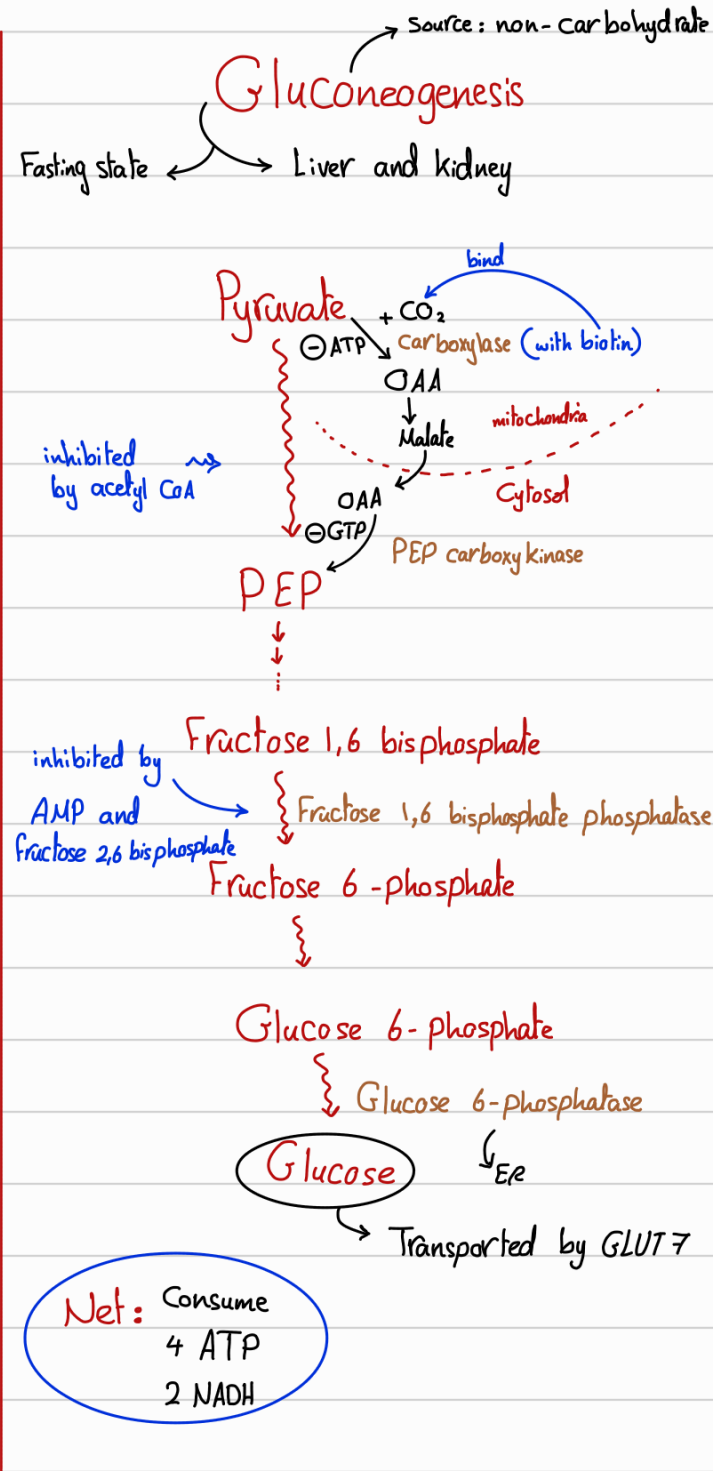 Source: non-carbohydrate
Gluconeogenesis
Fasting state
Liver and kidney
bind
Pyruvate
+ CO₂
⊖ ATP
carboxylase (with biotin)
OAA
Malate
mitochondria
inhibited
by acetyl CoA
Cytosol
OAA
⊖ GTP
PEP carboxy kinase
PEP
Fructose 1,6 bisphosphate
inhibited by
AMP and
fructose 2,6 bisphosphate
Fructose 1,6 bisphosphate phosphatase
Fructose 6-phosphate
Glucose 6-phosphate
Glucose 6-phosphatase
Glucose
ER
Transported by GLUT 7
Net: Consume
4 ATP
2 NADH